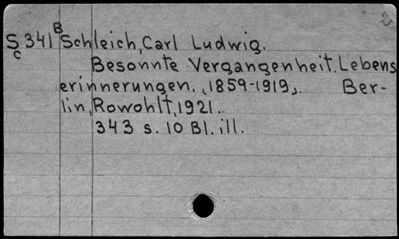 2
S 341 B Schleich, Carl Ludwig.
c Besonnte Vergangenheit. Lebens
erinnerungen. (1859-1919). Ber-
lin, Rowohlt, 1921.
343 s. 10 Bl. ill.